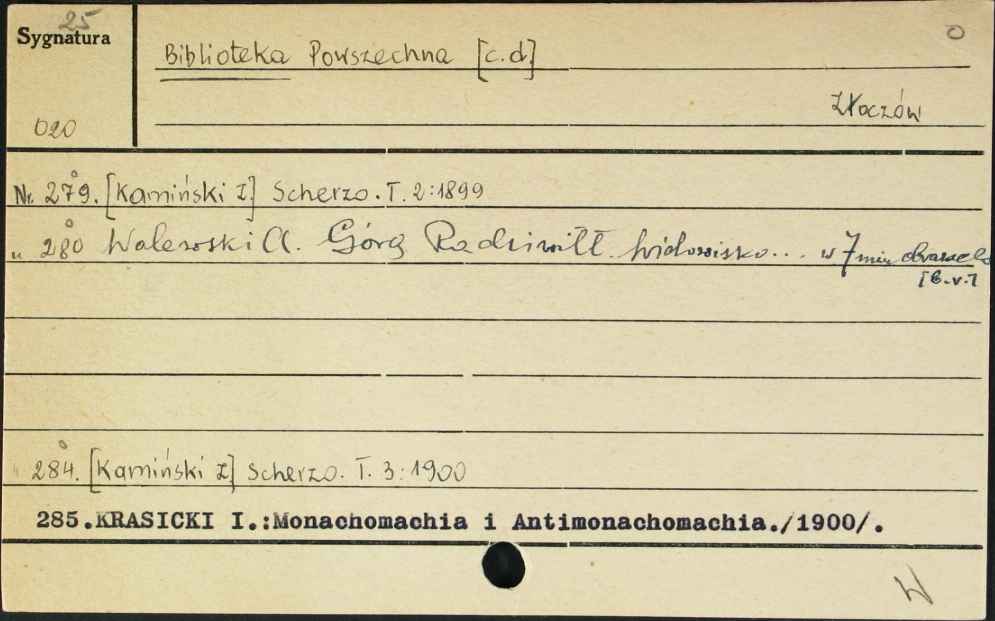 25
Sygnatura
020
o
Biblioteka Powszechna [c.d.]
Złoczów
Nr. 279. [Kamiński Z] Scherzo. T. 2: 1899
" 280 Walewski A. Górą Radziwiłł. Widowisko... w 7miu obrazach
[b.r.]
" 284. [Kamiński Z] Scherzo. T. 3: 1900
285.KRASICKI I.:Monachomachia i Antimonachomachia./1900/.
W